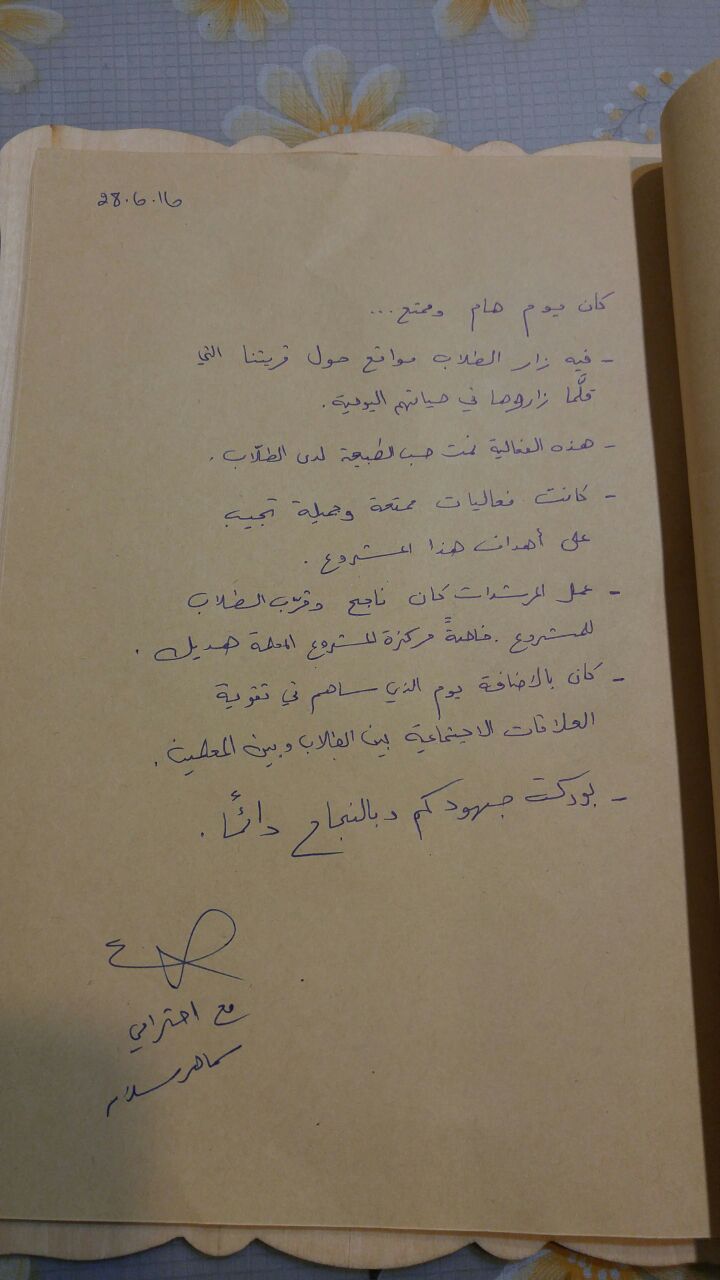 28.6.16
كان يوم هام وممتع...
- فيه زار الطلاب مواقع حول قريتنا التي
قلّما زاروها في حياتهم اليومية.
- هذه الفعالية نمت حب الطبيعة لدى الطلّاب.
- كانت فعاليات ممتعة وجميلة تجيب
على أهداف هذا المشروع.
- عمل المرشدات كان ناجح وقرّب الطلاب
للمشروع. خاصةً مركزة المشروع المعلمة هديل.
- كان بالاضافة يوم الذي ساهم في تقوية
العلاقات الاجتماعية بين الطلاب وبين المعلمين.
- بوركت جهودكم وبالنجاح دائمًا.
مع احترامي